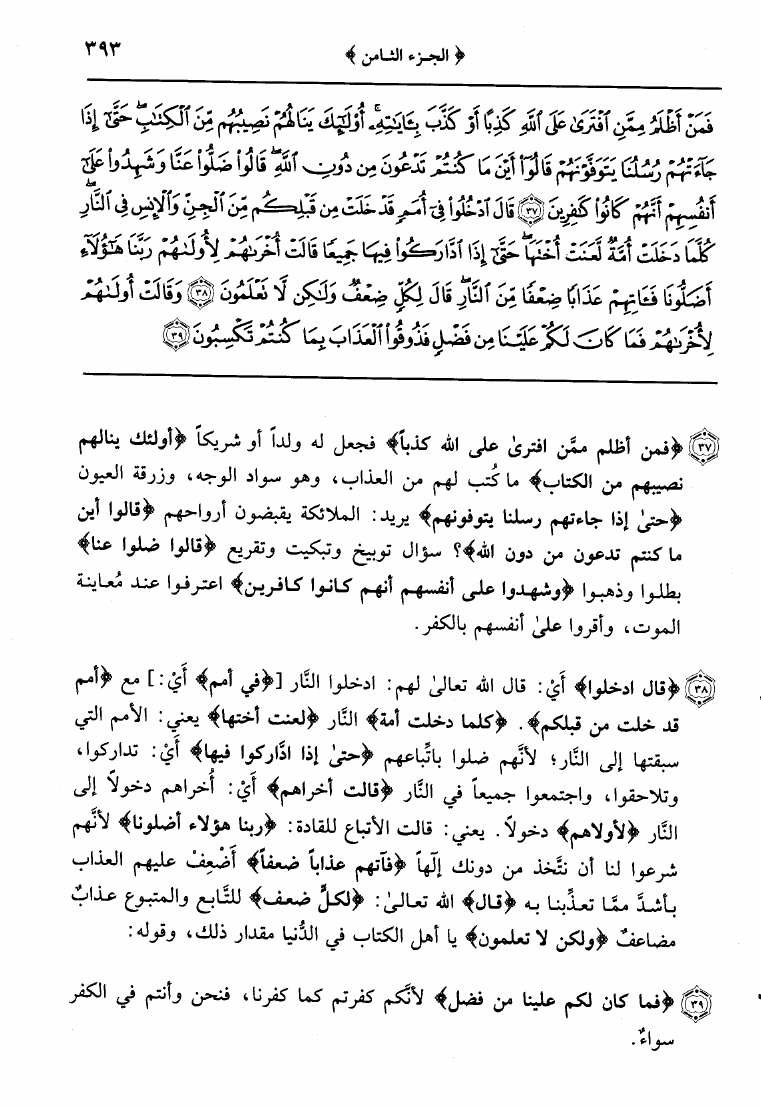 ﴿ الجزء الثامن ﴾ ٣٩٣
فَمَنْ أَظْلَمُ مِمَّنِ ٱفْتَرَىٰ عَلَى ٱللَّهِ كَذِبًا أَوْ كَذَّبَ بِـَٔايَـٰتِهِۦٓ ۚ أُو۟لَـٰٓئِكَ يَنَالُهُمْ نَصِيبُهُم مِّنَ ٱلْكِتَـٰبِ ۖ حَتَّىٰٓ إِذَا
جَآءَتْهُمْ رُسُلُنَا يَتَوَفَّوْنَهُمْ قَالُوٓا۟ أَيْنَ مَا كُنتُمْ تَدْعُونَ مِن دُونِ ٱللَّهِ ۖ قَالُوا۟ ضَلُّوا۟ عَنَّا وَشَهِدُوا۟ عَلَىٰٓ
أَنفُسِهِمْ أَنَّهُمْ كَانُوا۟ كَـٰفِرِينَ ٣٧ قَالَ ٱدْخُلُوا۟ فِىٓ أُمَمٍ قَدْ خَلَتْ مِن قَبْلِكُم مِّنَ ٱلْجِنِّ وَٱلْإِنسِ فِى ٱلنَّارِ ۖ
كُلَّمَا دَخَلَتْ أُمَّةٌ لَّعَنَتْ أُخْتَهَا ۖ حَتَّىٰٓ إِذَا ٱدَّارَكُوا۟ فِيهَا جَمِيعًا قَالَتْ أُخْرَىٰهُمْ لِأُولَىٰهُمْ رَبَّنَا هَـٰٓؤُلَآءِ
أَضَلُّونَا فَـَٔاتِهِمْ عَذَابًا ضِعْفًا مِّنَ ٱلنَّارِ ۖ قَالَ لِكُلٍّ ضِعْفٌ وَلَـٰكِن لَّا نَعْلَمُونَ ٣٨ وَقَالَتْ أُولَىٰهُمْ
لِأُخْرَىٰهُمْ فَمَا كَانَ لَكُمْ عَلَيْنَا مِن فَضْلٍ فَذُوقُوا۟ ٱلْعَذَابَ بِمَا كُنتُمْ تَكْسِبُونَ ٣٩
٣٧ ﴿فمن أظلم ممَّن افترىٰ على الله كذباً﴾ فجعل له ولداً أو شريكاً ﴿أولئك ينالهم
نصيبهم من الكتاب﴾ ما كُتب لهم من العذاب، وهو سواد الوجه، وزرقة العيون
﴿حتىٰ إذا جاءتهم رسلنا يتوفونهم﴾ يريد: الملائكة يقبضون أرواحهم ﴿قالوا أين
ما كنتم تدعون من دون الله﴾؟ سؤال توبيخ وتبكيت وتقريع ﴿قالوا ضلوا عنا﴾
بطلوا وذهبوا ﴿وشهدوا على أنفسهم أنهم كانوا كافرين﴾ اعترفوا عند مُعاينة
الموت، وأقروا علىٰ أنفسهم بالكفر.
٣٨ ﴿قال ادخلوا﴾ أيْ: قال الله تعالىٰ لهم: ادخلوا النَّار [﴿في أمم﴾ أيْ:] مع ﴿أمم
قد خلت من قبلكم﴾. ﴿كلما دخلت أمة﴾ النَّار ﴿لعنت أختها﴾ يعني: الأمم التي
سبقتها إلى النَّار؛ لأنَّهم ضلوا باتِّباعهم ﴿حتىٰ إذا ادَّاركوا فيها﴾ أيْ: تداركوا،
وتلاحقوا، واجتمعوا جميعاً في النَّار ﴿قالت أخراهم﴾ أيْ: أُخراهم دخولاً إلى
النَّار ﴿لأولاهم﴾ دخولاً. يعني: قالت الأتباع للقادة: ﴿ربنا هؤلاء أضلونا﴾ لأنَّهم
شرعوا لنا أن نتَّخذ من دونك إلٰهاً ﴿فآتهم عذاباً ضعفاً﴾ أَضْعِفْ عليهم العذاب
بأشدَّ ممَّا تعذِّبنا به ﴿قال﴾ الله تعالىٰ: ﴿لكلٍّ ضعف﴾ للتَّابع والمتبوع عذابٌ
مضاعفٌ ﴿ولكن لا تعلمون﴾ يا أهل الكتاب في الدُّنيا مقدار ذلك، وقوله:
٣٩ ﴿فما كان لكم علينا من فضل﴾ لأنَّكم كفرتم كما كفرنا، فنحن وأنتم في الكفر
سواءٌ.